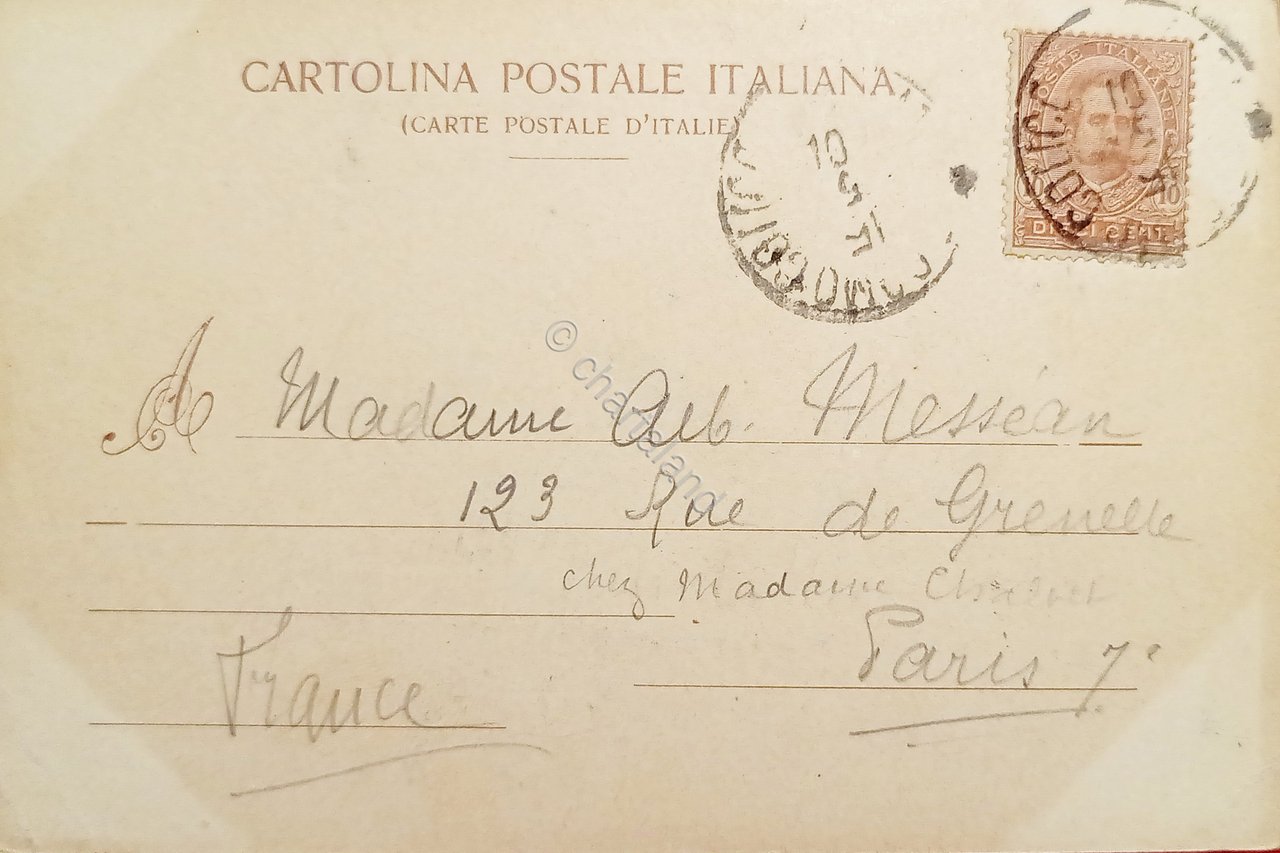 CARTOLINA POSTALE ITALIANA
(CARTE POSTALE D'ITALIE)
POSTE ITALIANE
10
DIECI CENT.
COLICO
COMO
10
© chartaland
A Madame Alb. Messéan
123 Rue de Grenelle
chez Madame
Paris 7e
France